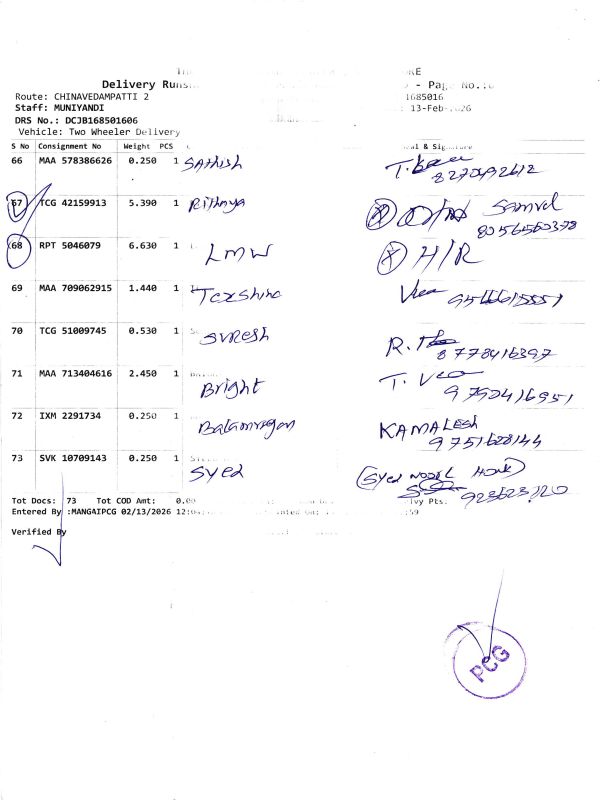 Delivery Runs - Page No.:
Route: CHINAVEDAMPATTI 2 1685016
Staff: MUNIYANDI : 13-Feb-2026
DRS No.: DCJB168501606
Vehicle: Two Wheeler Delivery
S No Consignment No Weight PCS & Signature
66 MAA 578386626 0.250 1 Sathish
67 TCG 42159913 5.390 1 Rithnya Samvel
8056560378
68 RPT 5046079 6.630 1 LMW H/R
69 MAA 709062915 1.440 1 Texshine
70 TCG 51009745 0.530 1 Suresh
8778416397
71 MAA 713404616 2.450 1 Bright
9790416951
72 IXM 2291734 0.250 1 Balamurugan KAMALESH
9751628144
73 SVK 10709143 0.250 1 Syed Syed
Tot Docs: 73 Tot COD Amt: 0.00
Entered By :MANGAIPCG 02/13/2026
Verified By
PCG